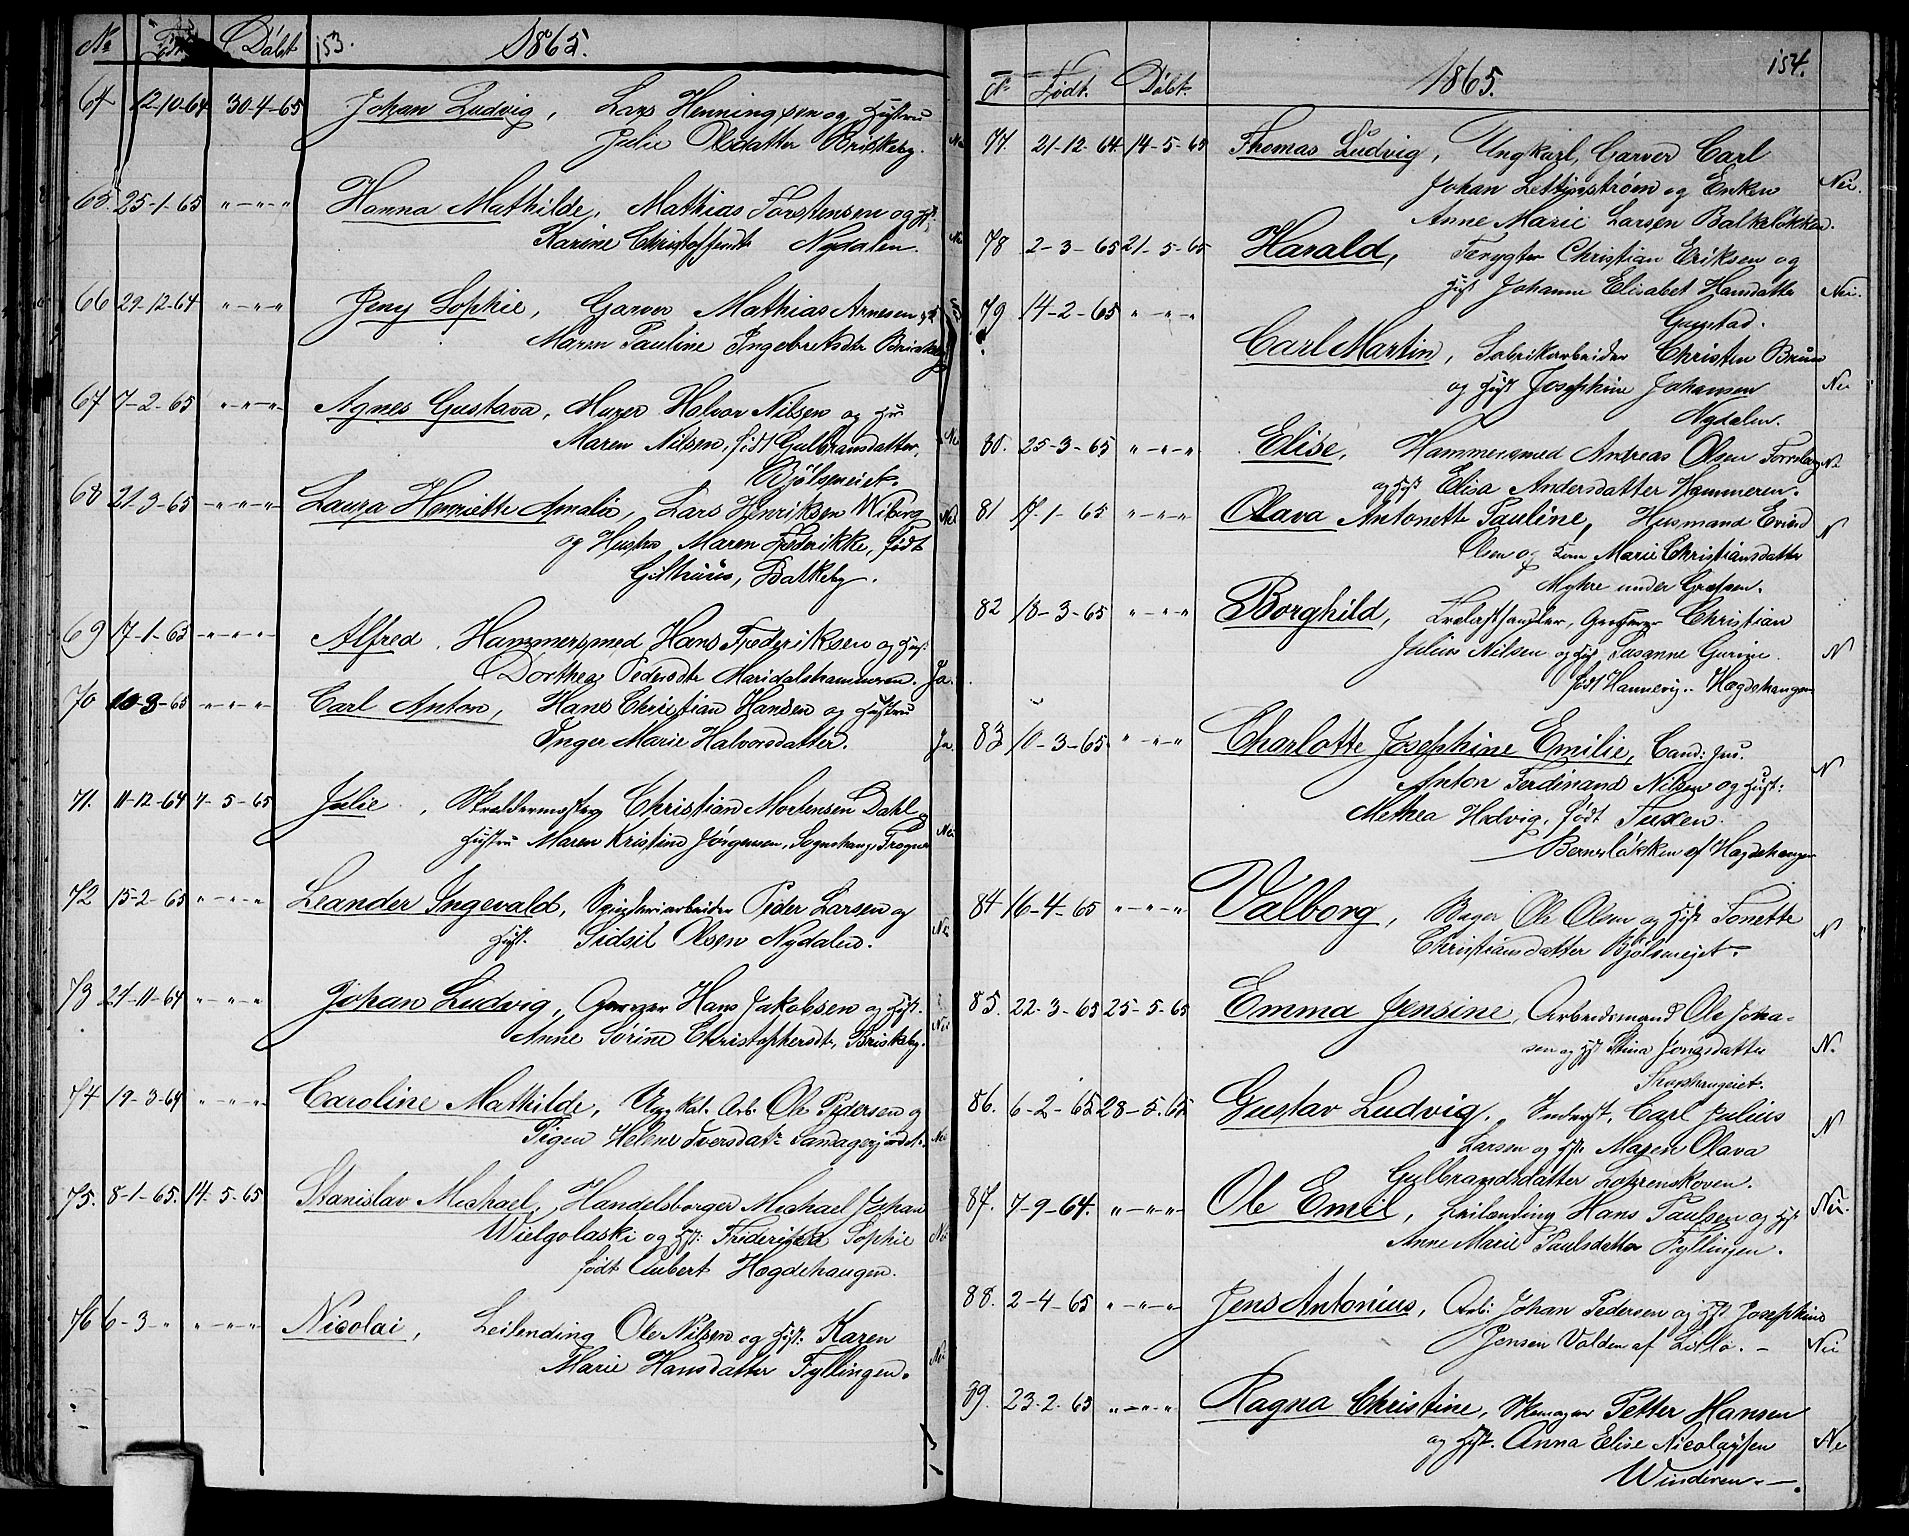 No Født Døbt 153. 1865.
64 12-10-64 30-4-65 Johan Ludvig, Lars Henningsen og Hustru
Julie Olsdatter Briskeby.
65. 25-1-65 "-"-" Hanna Mathilde, Mathias Torstensen og H.
Karine Christoffersdt Nydalen.
66 29-12-64 "-"-" Jeny Sophie, Garver Mathias Arnesen og H
Maren Pauline Ingebretsdtr Briskeby
67 7-2-65 "-"-" Agnes Gustava, Murer Halvor Nilsen og Hu
Maren Nilsen, født Gulbransdatter,
Bjølseneiet.
68 21-3-65 "-"-" Laura Henriette Amalie, Lars Henriksen Wiberg Nei
og Hustru Maren Fredrikke, født
Gilthuus, Balkeby.
69 17-1-65 "-"-" Alfred, Hammersmed Hans Frederiksen og Hus:
Dorthea Pedersdtr Maridalshammeren. Ja.
70 10-3-65 "-"-" Carl Anton, Hans Christian Hansen og Hustru
Inger Marie Halvorsdatter. Ja.
71. 11-12-64 7-5-65 Julie, Skræddermester Christian Mortensen Dahl og
Hustru Maren Kristine Jørgensen, Frogner Nei
72 15-2-65 "-"-" Leander Ingevald, Spinderiarbeider Peder Larsen og
Hust. Sidsil Olsen Nydalen. Nei
73 27-11-64 "-"-" Johan Ludvig, Hans Jakobsen og Hust.
Anne Sørine Christophersdt, Briskeby. Nei
74 19-3-64 "-"-" Caroline Mathilde, Ungkal. Arb. Ole Pedersen og
Pigen Helene Iversdatr Sandagerjordet. Nei
75. 8-1-65. 14-5-65 Stanislav Michael, Handelsborger Michael Johan
Wielgolaski og Hst: Frederikka Sophie
født Aubert Hægdehaugen.
76 6-3 " "-"-" Nicolai, Leilending Ole Nilsen og Hust: Karen
Marie Hansdatter Fyllingen. Nei
No Født. Døbt. 1865. 154.
77. 21-12-64. 14-5-65 Thomas Ludvig, Ungkarl, Garver Carl
Johan Lettinstrøm og Enken Nei.
Anne Marie Larsen Balkeløkken.
78 2-3-65 21-5-65 Harald, Christian Eriksen og
Hust Johanne Elisabet Hansdatter Nei.
Guustad.
79 14-2-65 "-"-" Carl Martin, Fabrikarbeider Christen Bruun
og Hust Josephine Johansen Nei
Nydalen.
80. 25-3-65 "-"-" Elise, Hammersmed Andreas Olsen N
og Hust Elisa Andersdatter Hammeren.
81 17-1-65 "-"-" Olava Antonette Pauline, Husmand Evind N
Olsen og Kone Marie Christiansdatter
Myhre under Grefsen.
82 18-3-65 "-"-" Borghild, Trælasthandler, Christian
Julius Nilsen og Hust Susanne Gurine N
født Hannevig. Hægdehaugen
83 10-3-65. "-"-" Charlotte Josephine Emilie, Cand: jur.
Anton Ferdinand Nilsen og Hust: N
Methea Hedvig, født Tuxen.
Bernsløkken af Hægdehaugen
84 16-4-65 "-"-" Valborg, Bager Ole Olsen og Hust Tonette
Christiansdatter Bjølseneiet. N
85. 22-3-65 25-5-65 Emma Jensine, Arbeidsmand Ole Joha-
sen og Hst Stina Jonasdatter N.
86. 6-2-65 28-5.65 Gustav Ludvig. Inderst, Carl Julius N
Larsen og Hst: Maren Olava
Gulbrandsdatter Lorenskoven.
87. 7-9-64. "-"-" Ole Emil, Leilending Hans Paulsen og Hst Nei.
Anne Marie Paulsdatter Fyllingen.
88. 2-4-65 "-"-" Jens Antonius, Arb: Johan Pedersen og Hst. Josephine
Jensen Volden af Lillo. Nei
89. 23-2-65 "-"-" Ragna Christine, Skomager Petter Hansen
og Hst. Anna Elise Nicolaysen Nei
Winderen.